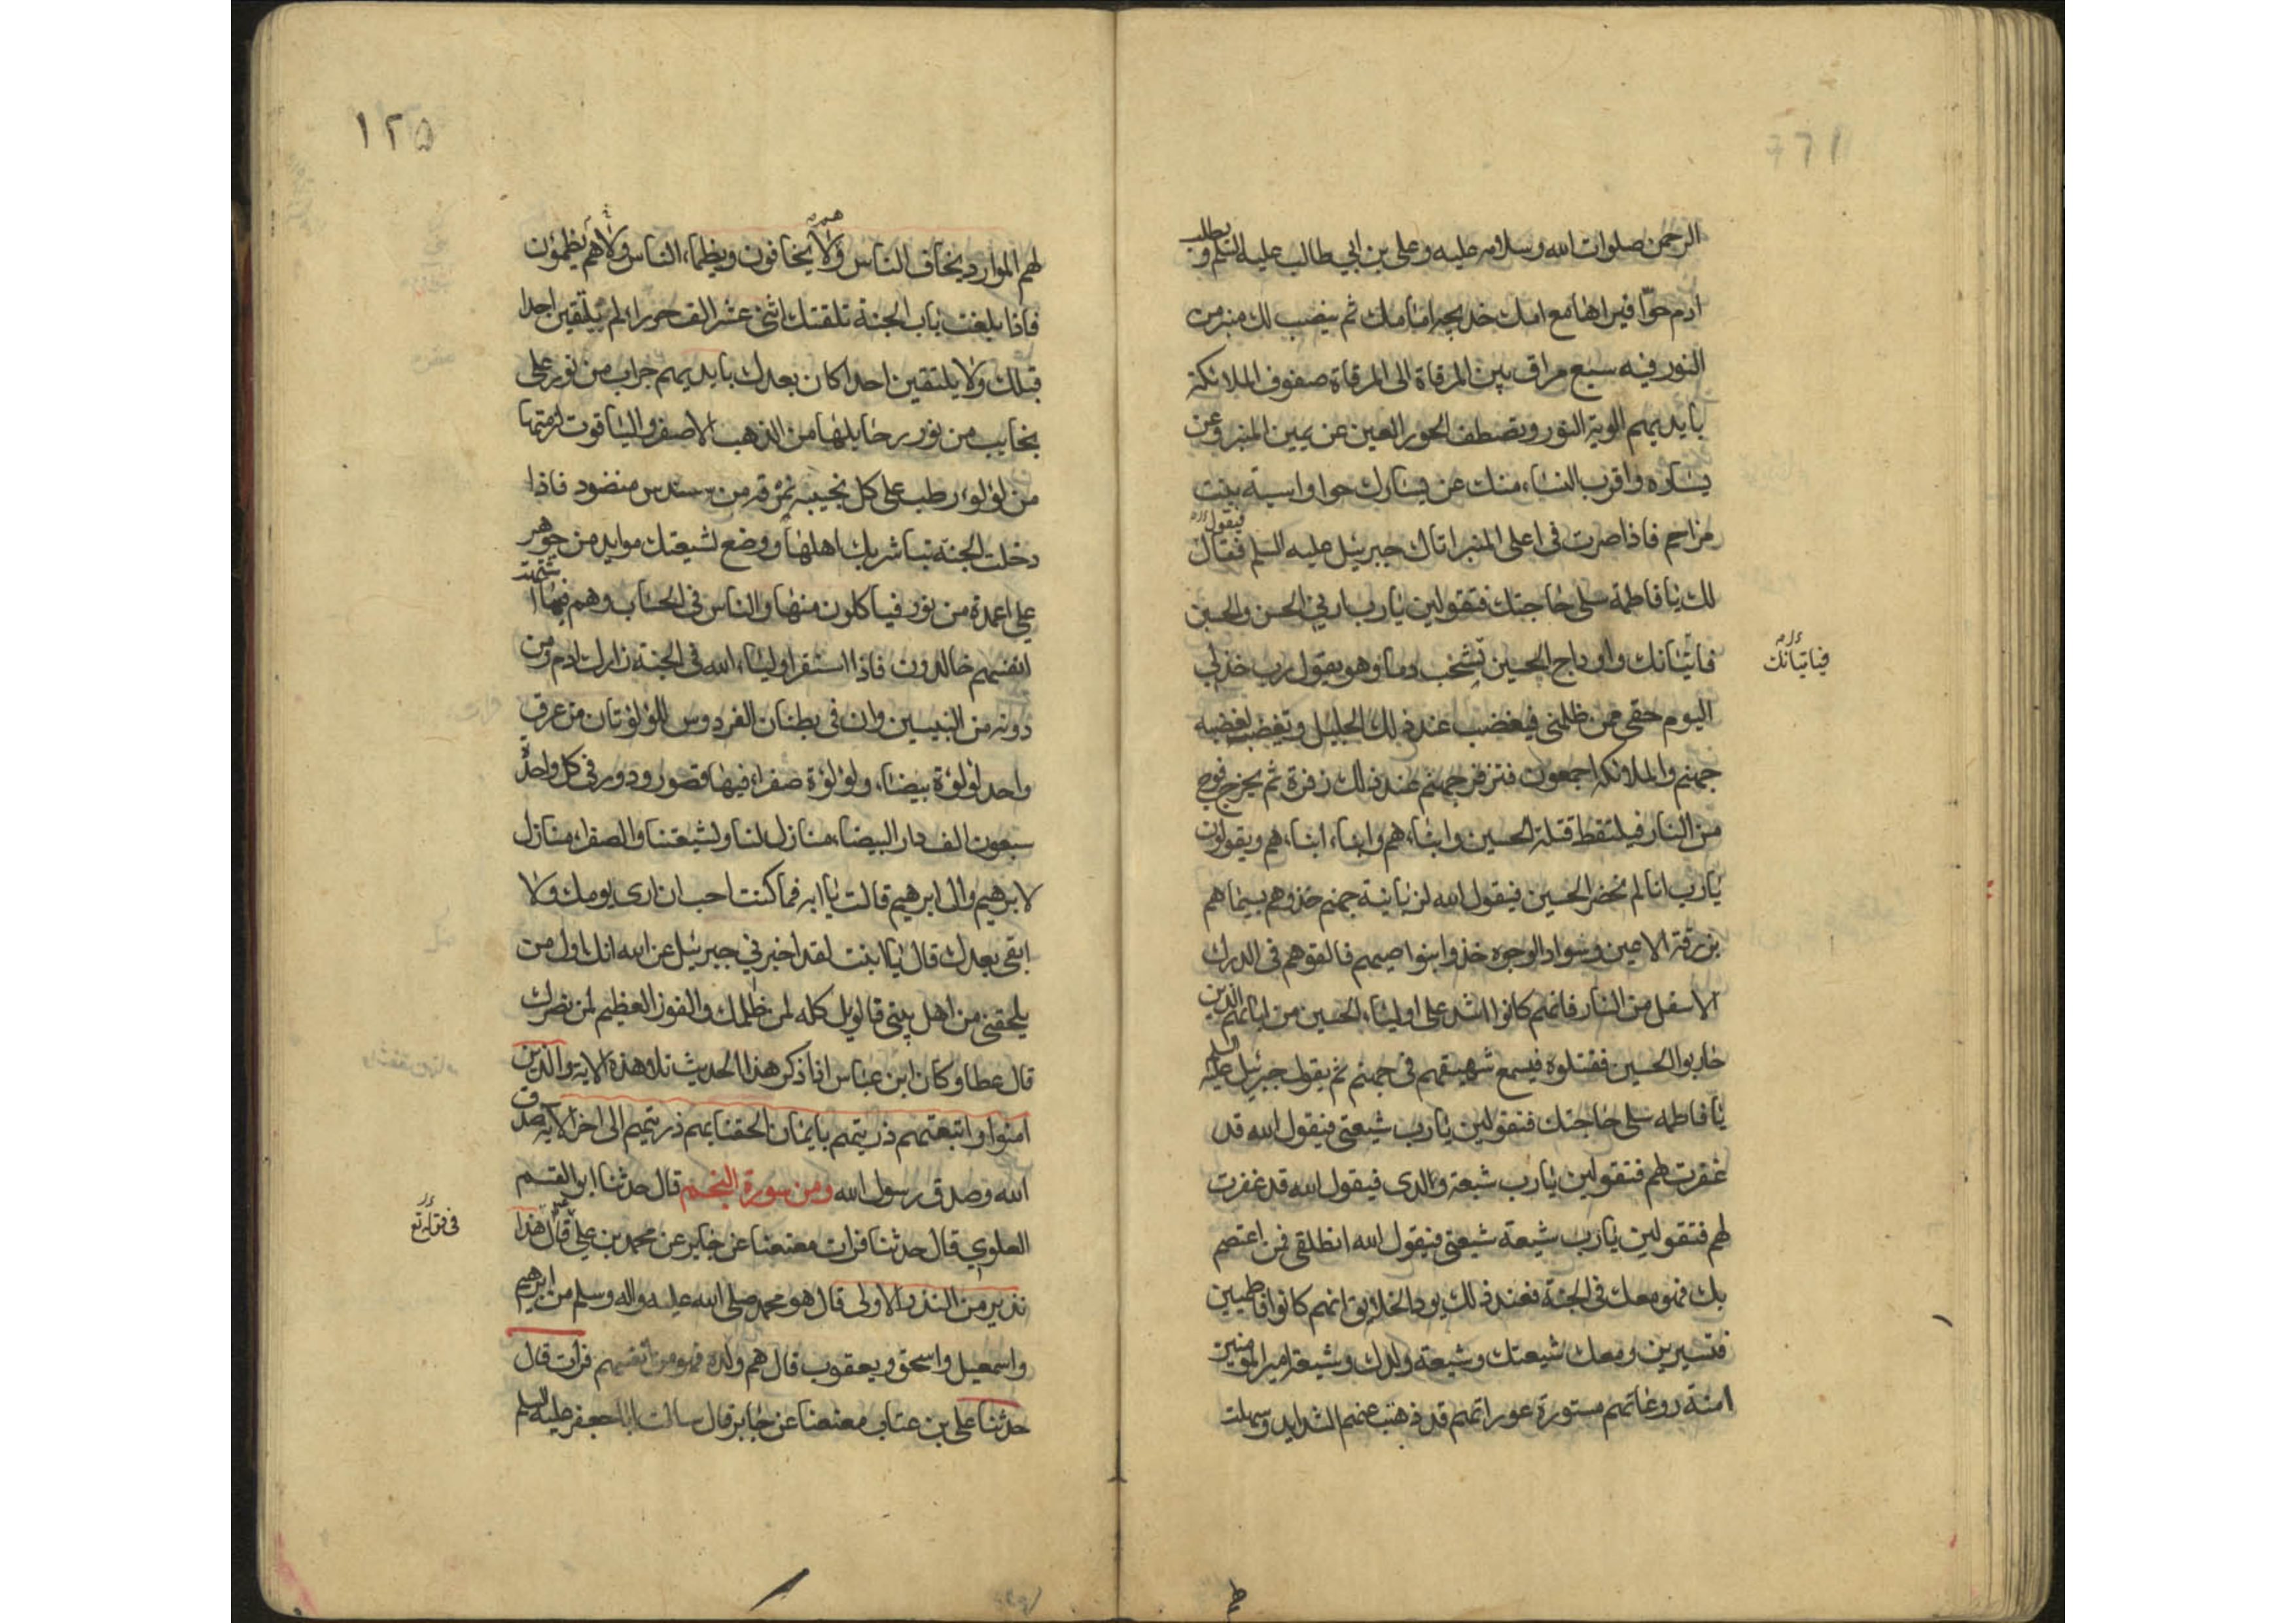 الرحمن صلوات الله وسلامه عليه وعلى بن ابي طالب عليه السلم ويطلب
ادم حوا فيراها مع امك خديجه امامك ثم ينصب لك منبر من
النور فيه سبع مراق بين المرقاة الى المرقاة صفوف الملائكة
بايديهم الوية النور وتصطف الحور العين عن يمين المنبر وعن
يساره واقرب النساء منك عن يسارك حوا واسية بنت
مزاحم فاذا صرت فى اعلى المنبر اتاك جبرئيل عليه السلم فقال
فيقول
لك يا فاطمة سلى حاجتك فتقولين يا رب ارني الحسن والحسين
فاتيانك واوداج الحسين تشخب دما وهو يقول رب خذ لي
فياتيانك
اليوم حقى ممن ظلمنى فيغضب عند ذلك الجليل وتغضب لغضبه
جهنم والملائكة اجمعون فتزفر جهنم عند ذلك زفرة ثم يخرج فوج
من النار فيلتقط قتلة الحسين وابناء هم وابناء ابناء هم ويقولون
يا رب انا لم نحضر الحسين فيقول الله لزبانية جهنم خذوهم بسيماهم
بزرقة الاعين وسواد الوجوه خذوا بنواصيهم فالقوهم فى الدرك
الاسفل من النار فانهم كانوا اشد على اولياء الحسين من ابائهم الذين
حاربوا الحسين فقتلوه فيسمع شهيقهم فى جهنم ثم يقول جبرئيل عليه السلم
يا فاطمه سلى حاجتك فتقولين يا رب شيعتى فيقول الله قد
غفرت لهم فتقولين يا رب شيعة والدى فيقول الله قد غفرت
لهم فتقولين يا رب شيعة شيعتى فيقول الله انطلقى فمن اعتصم
بك فهو معك فى الجنة فعند ذلك يود الخلايق انهم كانوا فاطميين
فتسيرين ومعك شيعتك وشيعة ولدك وشيعة امير المومنين
امنة روعاتهم مستورة عوراتهم قد ذهبت عنهم الشدايد وسهلت
١٢٥
لهم الموارد يخاف الناس ولا يخافون ويظماء الناس ولا هم يظمؤن
فاذا بلغت باب الجنة تلقتك اثنى عشر الف حوراء لم يتلقين احدا
قبلك ولا يلتقين احدا كان بعدك بايديهم حراب من نور على
نجايب من نور رحايلها من الذهب الاصفر والياقوت ازمتها
من لؤلوء رطب على كل نجيبه نمرقه من سندس منضود فاذا
دخلت الجنة تباشر بك اهلها ووضع لشيعتك موايد من جوهر
على اعمدة من نور فياكلون منها والناس فى الحساب وهم فيما اشتهت
انفسهم خالدون فاذا استقر اولياء الله فى الجنة زارك ادم ومن
دونه من النبيين وان فى بطنان الفردوس للؤلؤتان من عرق
واحد لؤلؤة بيضاء ولؤلؤة صفراء فيها قصور ودور فى كل واحدة
سبعون الف دار البيضاء منازل لنا ولشيعتنا والصفراء منازل
لابرهيم وال ابرهيم قالت يا ابه فما كنت احب ان ارى يومك ولا
ابقى بعدك قال يا ابنت لقد اخبرني جبرئيل عن الله انك اول من
يلحقنى من اهل بيتى فالويل كله لمن ظلمك والفوز العظيم لمن نصرك
قال عطا وكان ابن عباس اذا ذكر هذا الحديث تلا هذه الاية والذين
امنوا واتبعتهم ذريتهم بايمان الحقنا بهم ذريتهم الى اخر الاية صدق
الله وصدق رسول الله ومن سورة النجم قال حدثنا ابو القسم
العلوي قال حدثنا فرات معنعنا عن جابر عن محمد بن على قال هذا
نذير من النذر الاولى قال هو محمد صلى الله عليه واله وسلم من ابرهيم
واسمعيل واسحق ويعقوب قال هم ولده فهو من انفسهم فرات قال
حدثنا على بن عتاب معنعنا عن جابر قال سالت ابا جعفر عليه السلم